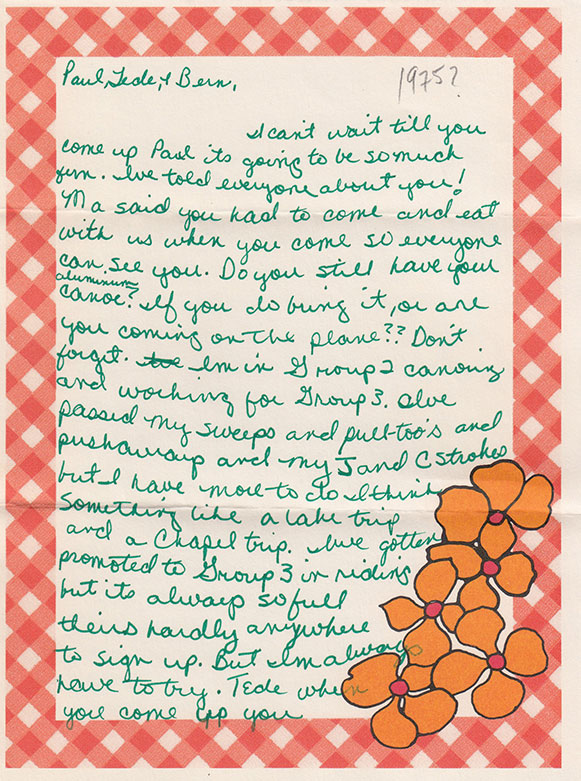 Paul, Tede, & Bern,
1975?
I can't wait till you
come up Paul its going to be so much
fun. Ive told everyone about you!
Ma said you had to come and eat
with us when you come so everyone
can see you. Do you still have your
aluminum
canoe? If you do bring it, or are
you coming on the plane?? Don't
forget. Im in Group 2 canoing
and working for Group 3. Ive
passed my sweeps and pull-too's and
pushaways and my J and C strokes
but I have more to do I think
something like a lake trip
and a Chapel trip. Ive gotten
promoted to Group 3 in riding
but its always so full
theirs hardly anywhere
to sign up. But Im always
have to try. Tede when
you come up you